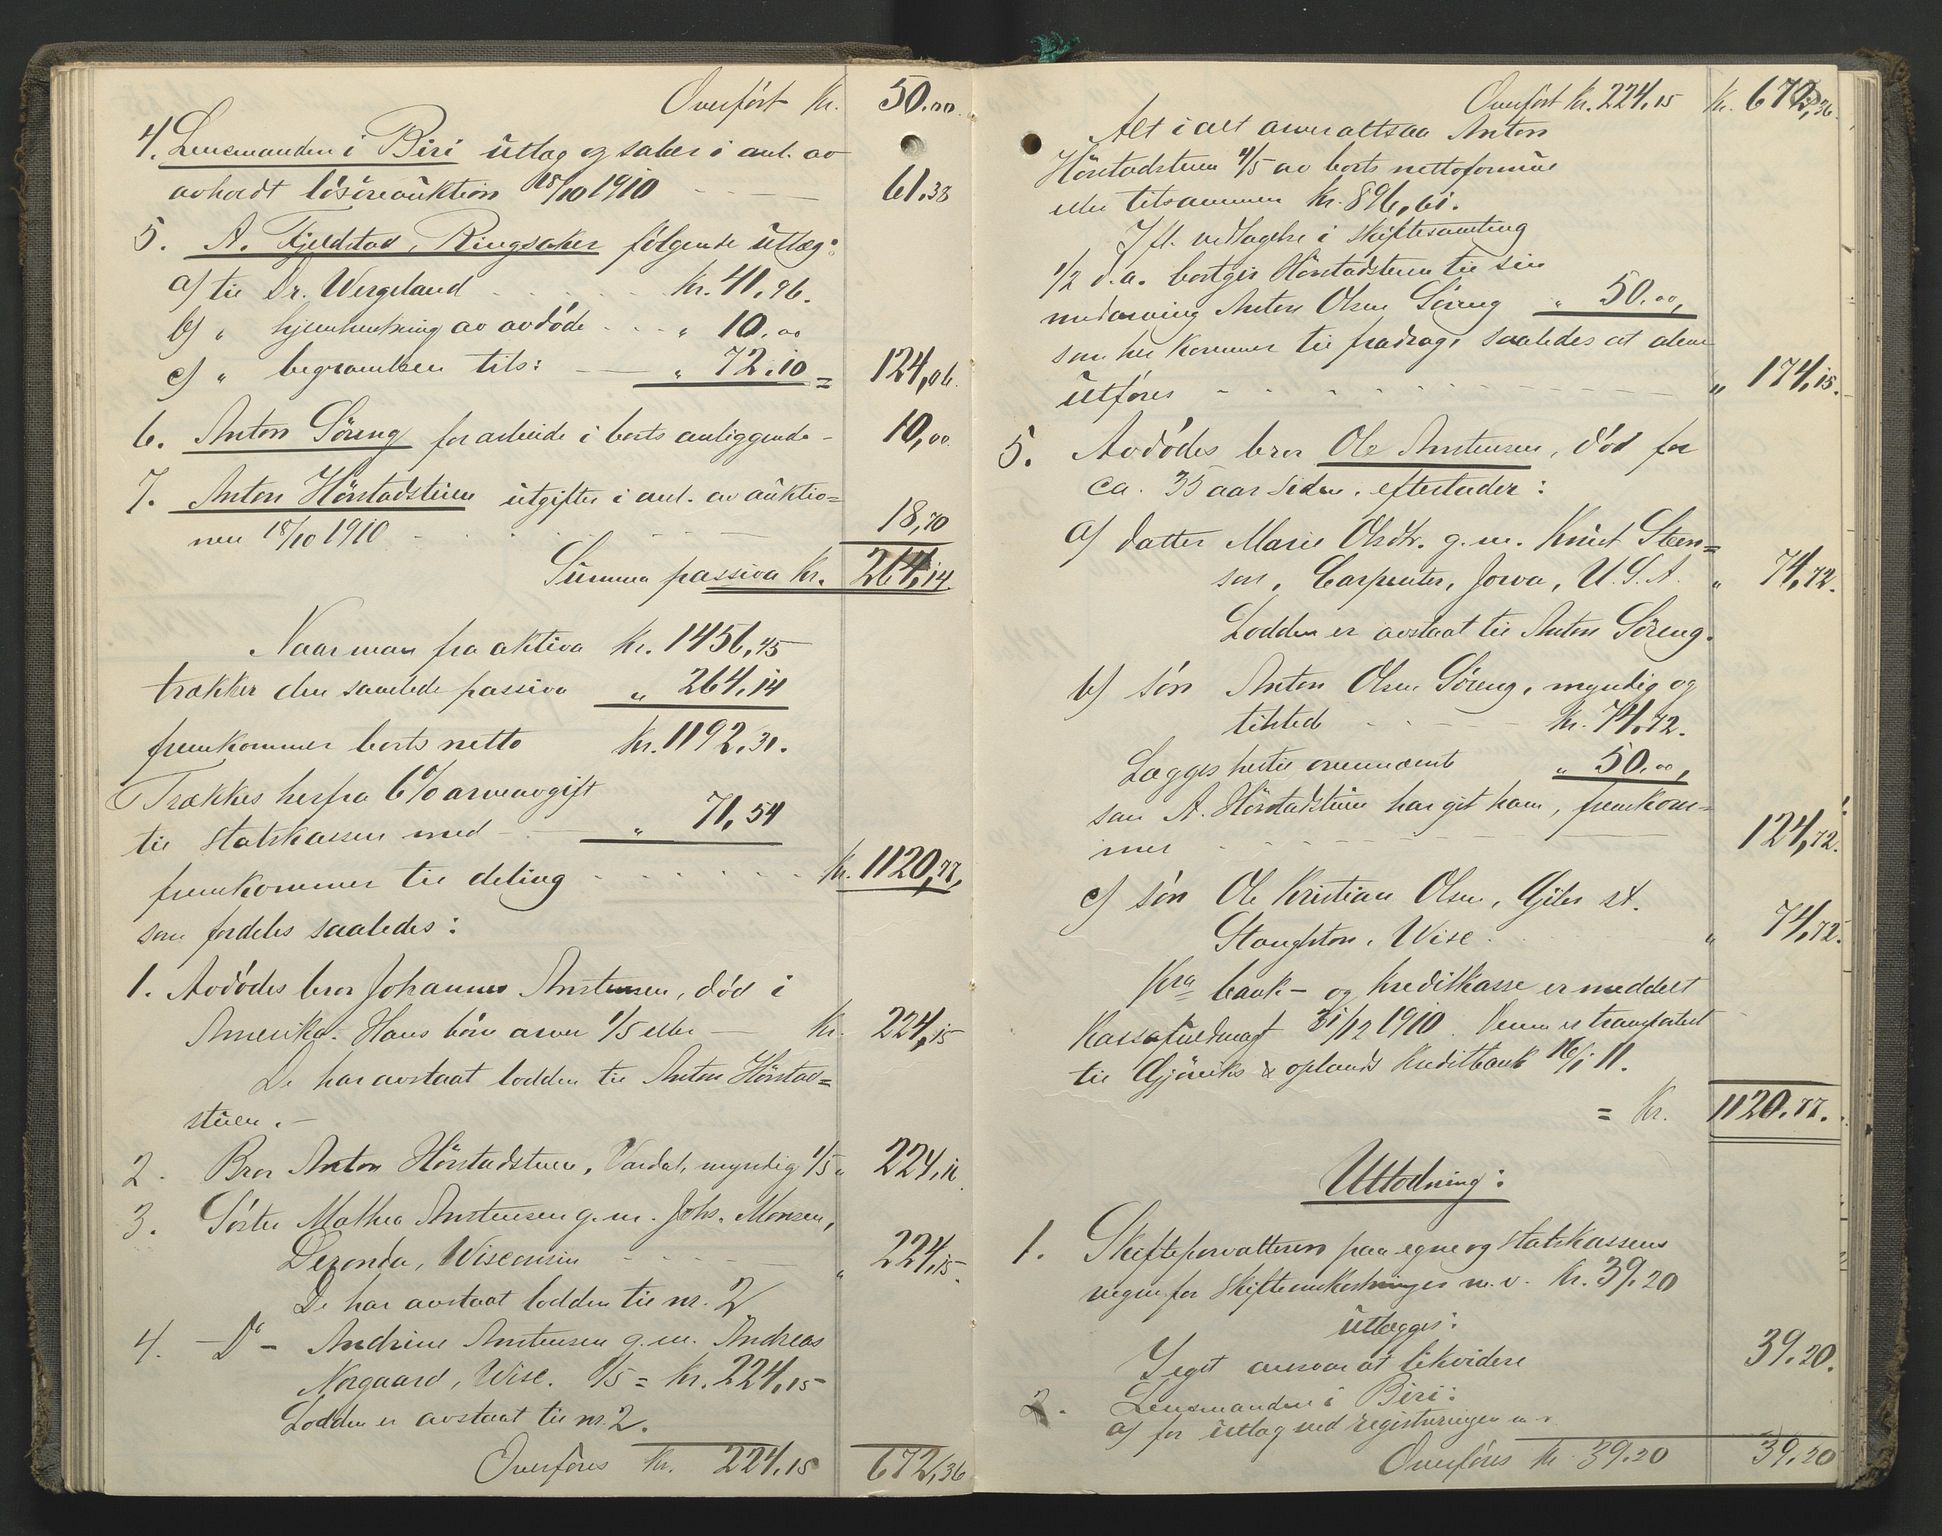 Overført Kr. 50.00.
4. Lensmanden i Biri utlæg og salær i anl. av
avholdt løsøreauktion 18/10 1910 — 61.38
5. A. Fjeldstad, Ringsaker følgende utlæg:
a) til Dr. Wergeland Kr. 41.96.
b) " hjemhentning av avdøde " 10.00
c) " begravelsen tils: — " 72.10 = 124,06.
6. Anton Søreng for arbeide i boets anliggende - 10,00.
7. Anton Hörstadstuen utgifter i anl. av auktio=
nen 18/10 1910 18,70
Summa passiva Kr. 264,14.
Naar man fra aktiva Kr. 1456,45
trækker den samlede passiva " 264,14
fremkommer boets netto Kr. 1192,31.
Trækkes herfra 6% arveavgift
til Statskassen med — " 71,54
fremkommer til deling Kr. 1120,77,
som fordeles saaledes:
1. Avdødes bror Johannes Anstensen, død i
Amerika. Hans børn arver 1/5 eller — Kr. 224,15
De har avstaat lodden til Anton Hörstad=
stuen. —
2. Bror Anton Hörstadstuen, Vardal, myndig 1/5 " 224,16
3. Søster Mathea Anstensen g.m. Johs. Monsen,
Deronda, Wisconsin " 224,15.
De har avstaat lodden til nr. 2
4. — Do — Andrine Anstensen g.m. Andreas
Norgaard, Wisc. 1/5 = Kr. 224,15
Lodden er avstaat til nr. 2.
Overføres Kr. 224,15 672,36
Overført Kr. 224,15 Kr. 672,36.
Alt i alt arver altsaa Anton
Hörstadstuen 4/5 av boets nettoformue
eller tilsammen Kr. 896,61.
Ifl. vedtagelse i skiftesamling
1/2 d.a. bortgir Hörstadstuen til sin
medarving Anton Olsen Søreng " 50.00,
som her kommer til fradrag, saaledes at alene
utføres " 174,15.
5. Avdødes bror Ole Anstensen, død for
ca. 35 aar siden, efterlader:
a) datter Marie Olsdtr. g.m. Knut Steen=
son, Carpenter, Jowa, U.S.A. " 74,72.
Lodden er avstaat til Anton Søreng.
b) søn Anton Olsen Søreng, myndig og
tilstede Kr. 74,72.
Lægges hertil ovennævnte " 50.00,
som A. Hörstadstuen har git ham, fremkom=
mer 124,72.
c) søn Ole Kristian Olsen, Giles st.
Stoughton, Wisc. " 74,72.
Kra bank- og Kreditkasse er meddelt
Kassafuldmagt 31/12 1910. Denne er transportert
til Gjøviks & oplands Kreditbank 16/1 11.
= Kr. 1120.77.
Utlodning:
1. Skifteforvalteren paa egne og statskassens
vegne for skifteomkostninger m.v. Kr. 39.20
utlægges:
I eget ansvar at likvidere 39.20.
2. Lensmanden i Biri:
a) for utlæg ved registreringen m.v.
Overføres Kr. 39.20 39.20